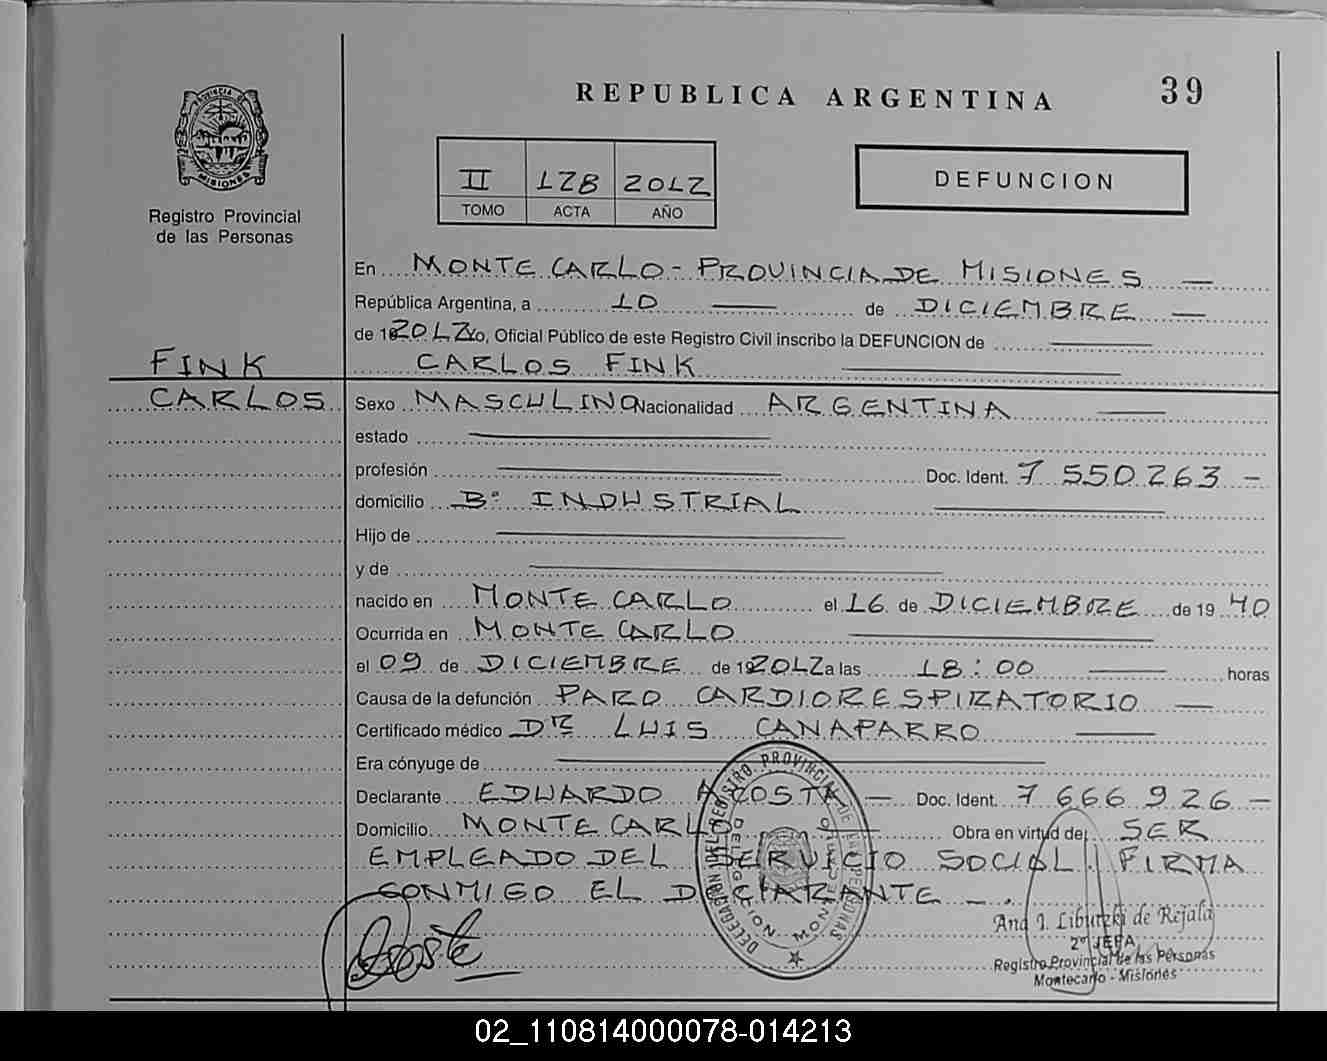 REPUBLICA ARGENTINA
39
PROVINCIA DE MISIONES
Registro Provincial
de las Personas
II 128 2012
TOMO ACTA AÑO
DEFUNCION
En MONTE CARLO - PROVINCIA DE MISIONES —
República Argentina, a 10 — de DICIEMBRE —
de 2012 Yo, Oficial Público de este Registro Civil inscribo la DEFUNCION de —
CARLOS FINK —
FINK
CARLOS
Sexo MASCULINO Nacionalidad ARGENTINA —
estado —
profesión — Doc. Ident. 7 550 263 -
domicilio Bº INDUSTRIAL —
Hijo de —
y de —
nacido en MONTE CARLO el 16 de DICIEMBRE de 19 40
Ocurrida en MONTE CARLO —
el 09 de DICIEMBRE de 2012 a las 18:00 — horas
Causa de la defunción PARO CARDIORESPIRATORIO —
Certificado médico Dr LUIS CANAPARRO —
Era cónyuge de —
Declarante EDUARDO ACOSTA — Doc. Ident. 7 666 926 -
Domicilio MONTE CARLO — Obra en virtud de SER
EMPLEADO DEL SERVICIO SOCIAL FIRMA
CONMIGO EL DECLARANTE - .
DELEGACION MONTE
Ana I. de Rejala
2º JEFA
Registro Provincial de las Personas
Montecarlo - Misiones
02_110814000078-014213